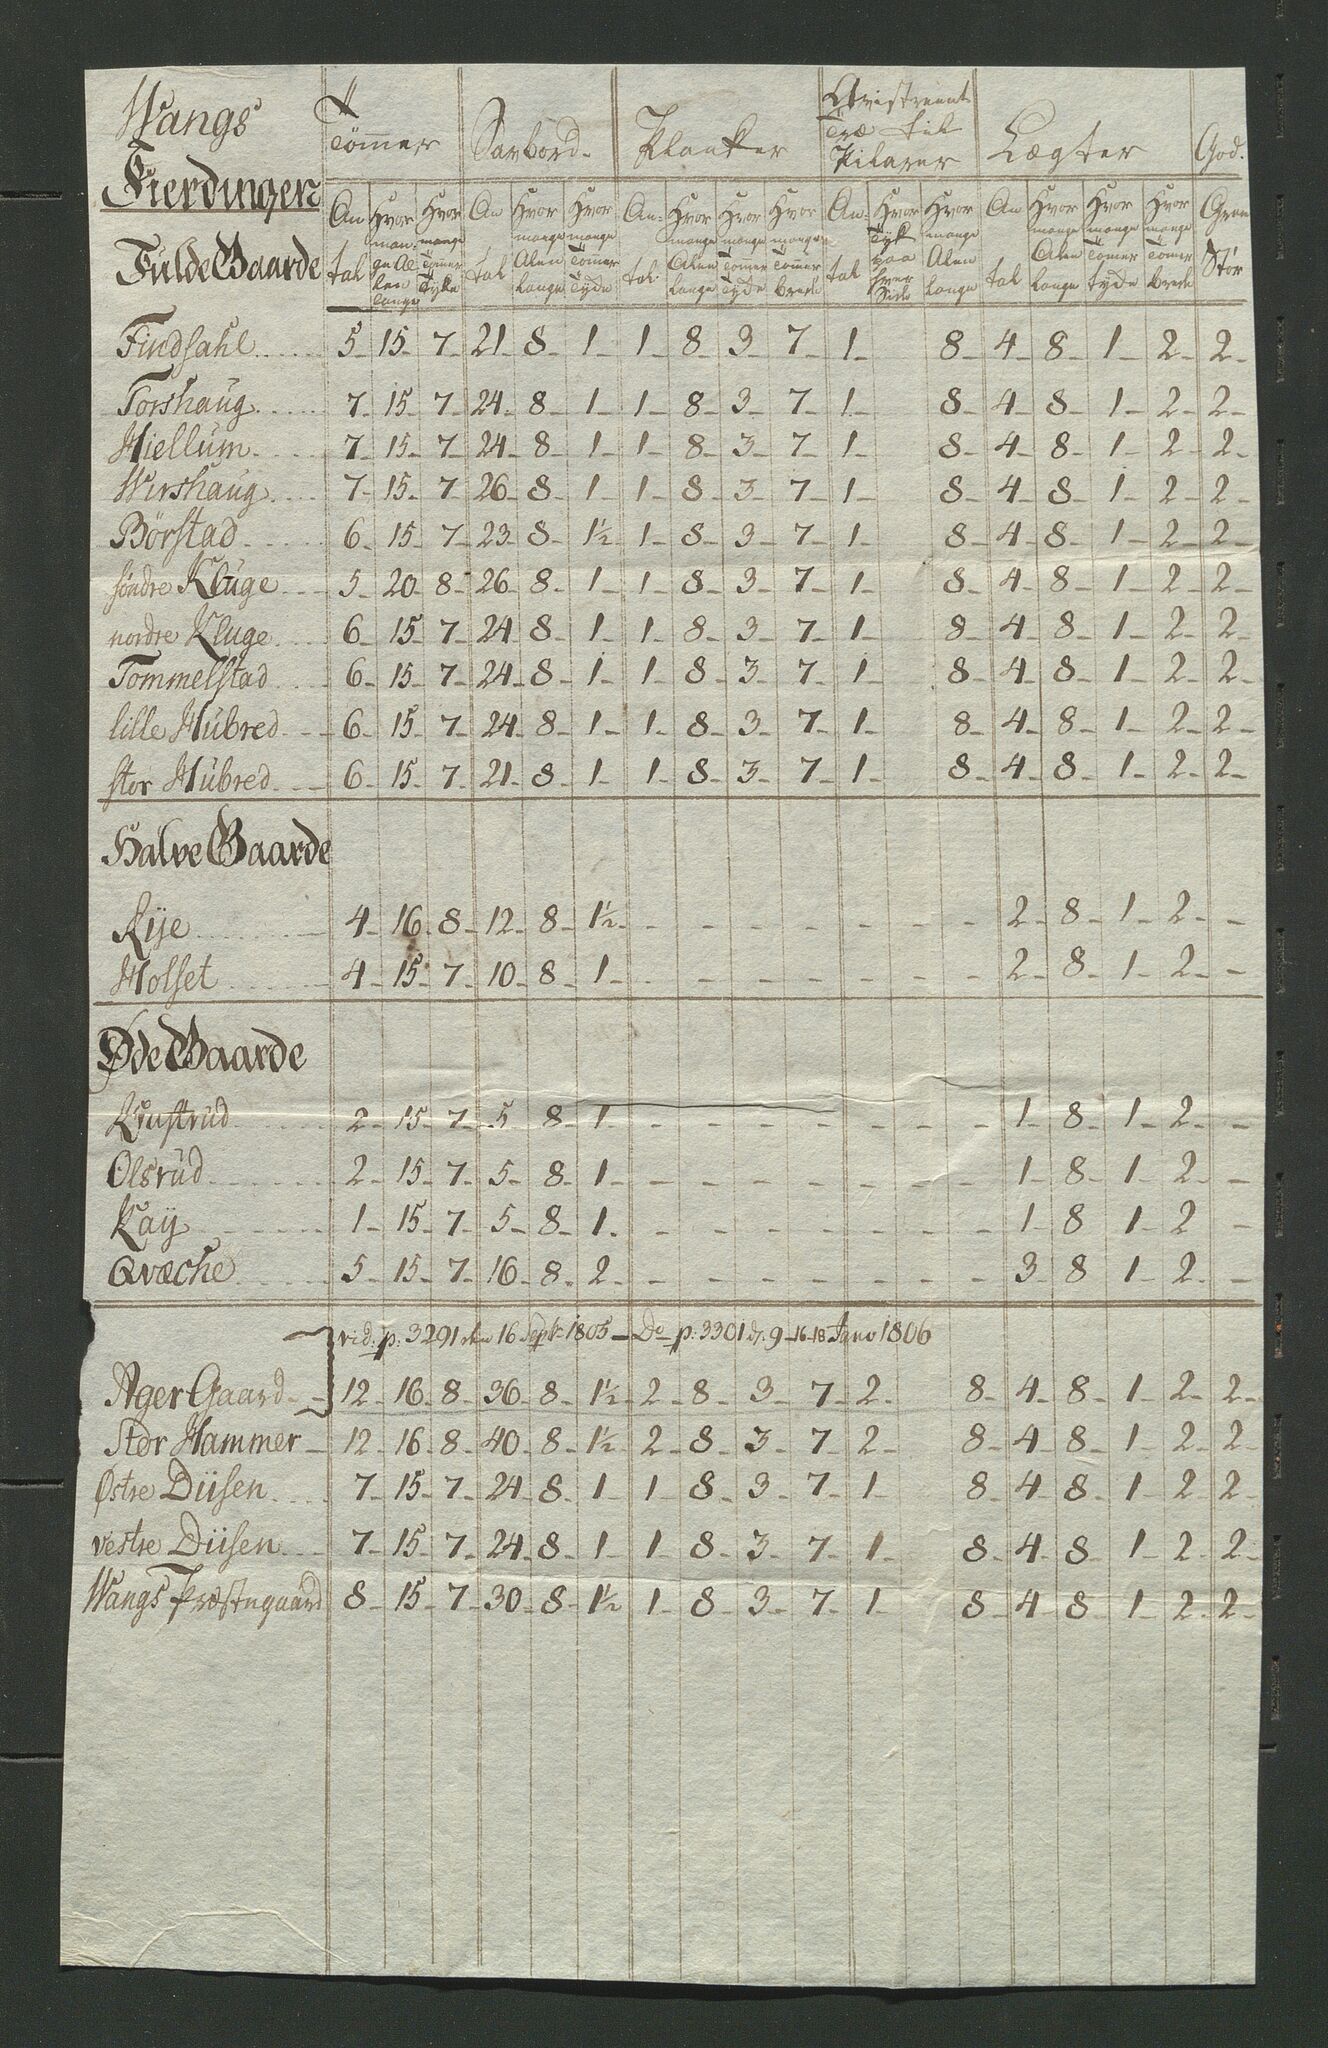 Wangs
Fierdingen
Fulde Gaarde
Tømmer Sarbord. Planker Qvistreent Træ til Pilarer Lægter God.
An tal Hvor mange Alen lange Hvor mange Tomer Tyke An tal Hvor mange Alen lange Hvor mange Tomer Tyde An- tal Hvor mange Alen lange Hvor mange Tomer Tyde Hvor mange Tomer brede An- tal Hvor Tyk paa hver Side Hvor mange Alen lange An tal Hvor mange Alen lange Hvor mange Tomer tyde Hvor mange Tomer brede Gran Stör
Findsahl 5 15 7 21 8 1 1 8 3 7 1 8 4 8 1 2 2
Torshaug 7 15 7 24 8 1 1 8 3 7 1 8 4 8 1 2 2
Hiellum 7 15 7 24 8 1 1 8 3 7 1 8 4 8 1 2 2
Wirshaug 7 15 7 26 8 1 1 8 3 7 1 8 4 8 1 2 2
Börstad 6 15 7 23 8 1½ 1 8 3 7 1 8 4 8 1 2 2
söndre Kluge 5 20 8 26 8 1 1 8 3 7 1 8 4 8 1 2 2
nordre Kluge 6 15 7 24 8 1 1 8 3 7 1 8 4 8 1 2 2
Tommelstad 6 15 7 24 8 1 1 8 3 7 1 8 4 8 1 2 2
lille Hubred 6 15 7 24 8 1 1 8 3 7 1 8 4 8 1 2 2
stor Hubred 6 15 7 21 8 1 1 8 3 7 1 8 4 8 1 2 2
Halve Gaarde
Rije 4 16 8 12 8 1½ - - - - - - - 2 8 1 2 -
Holset 4 15 7 10 8 1 - - - - - - - 2 8 1 2 -
Øde Gaarde
2 15 7 5 8 1 - - - - - - - 1 8 1 2 -
Olsrud 2 15 7 5 8 1 - - - - - - - 1 8 1 2 -
Kaij 1 15 7 5 8 1 - - - - - - - 1 8 1 2 -
Qvæche 5 15 7 16 8 2 - - - - - - - 3 8 1 2 -
vid: p: 3291 den 16 Sept: 1805 - Do p: 3301 d: 9-16-18 Jano 1806
Ager Gaard 12 16 8 36 8 1½ 2 8 3 7 2 8 4 8 1 2 2
Stor Hammer 12 16 8 40 8 1½ 2 8 3 7 2 8 4 8 1 2 2
Østre Diisen 7 15 7 24 8 1 1 8 3 7 1 8 4 8 1 2 2
vestre Diisen 7 15 7 24 8 1 1 8 3 7 1 8 4 8 1 2 2
Wangs Præstegaard 8 15 7 30 8 1½ 1 8 3 7 1 8 4 8 1 2 2